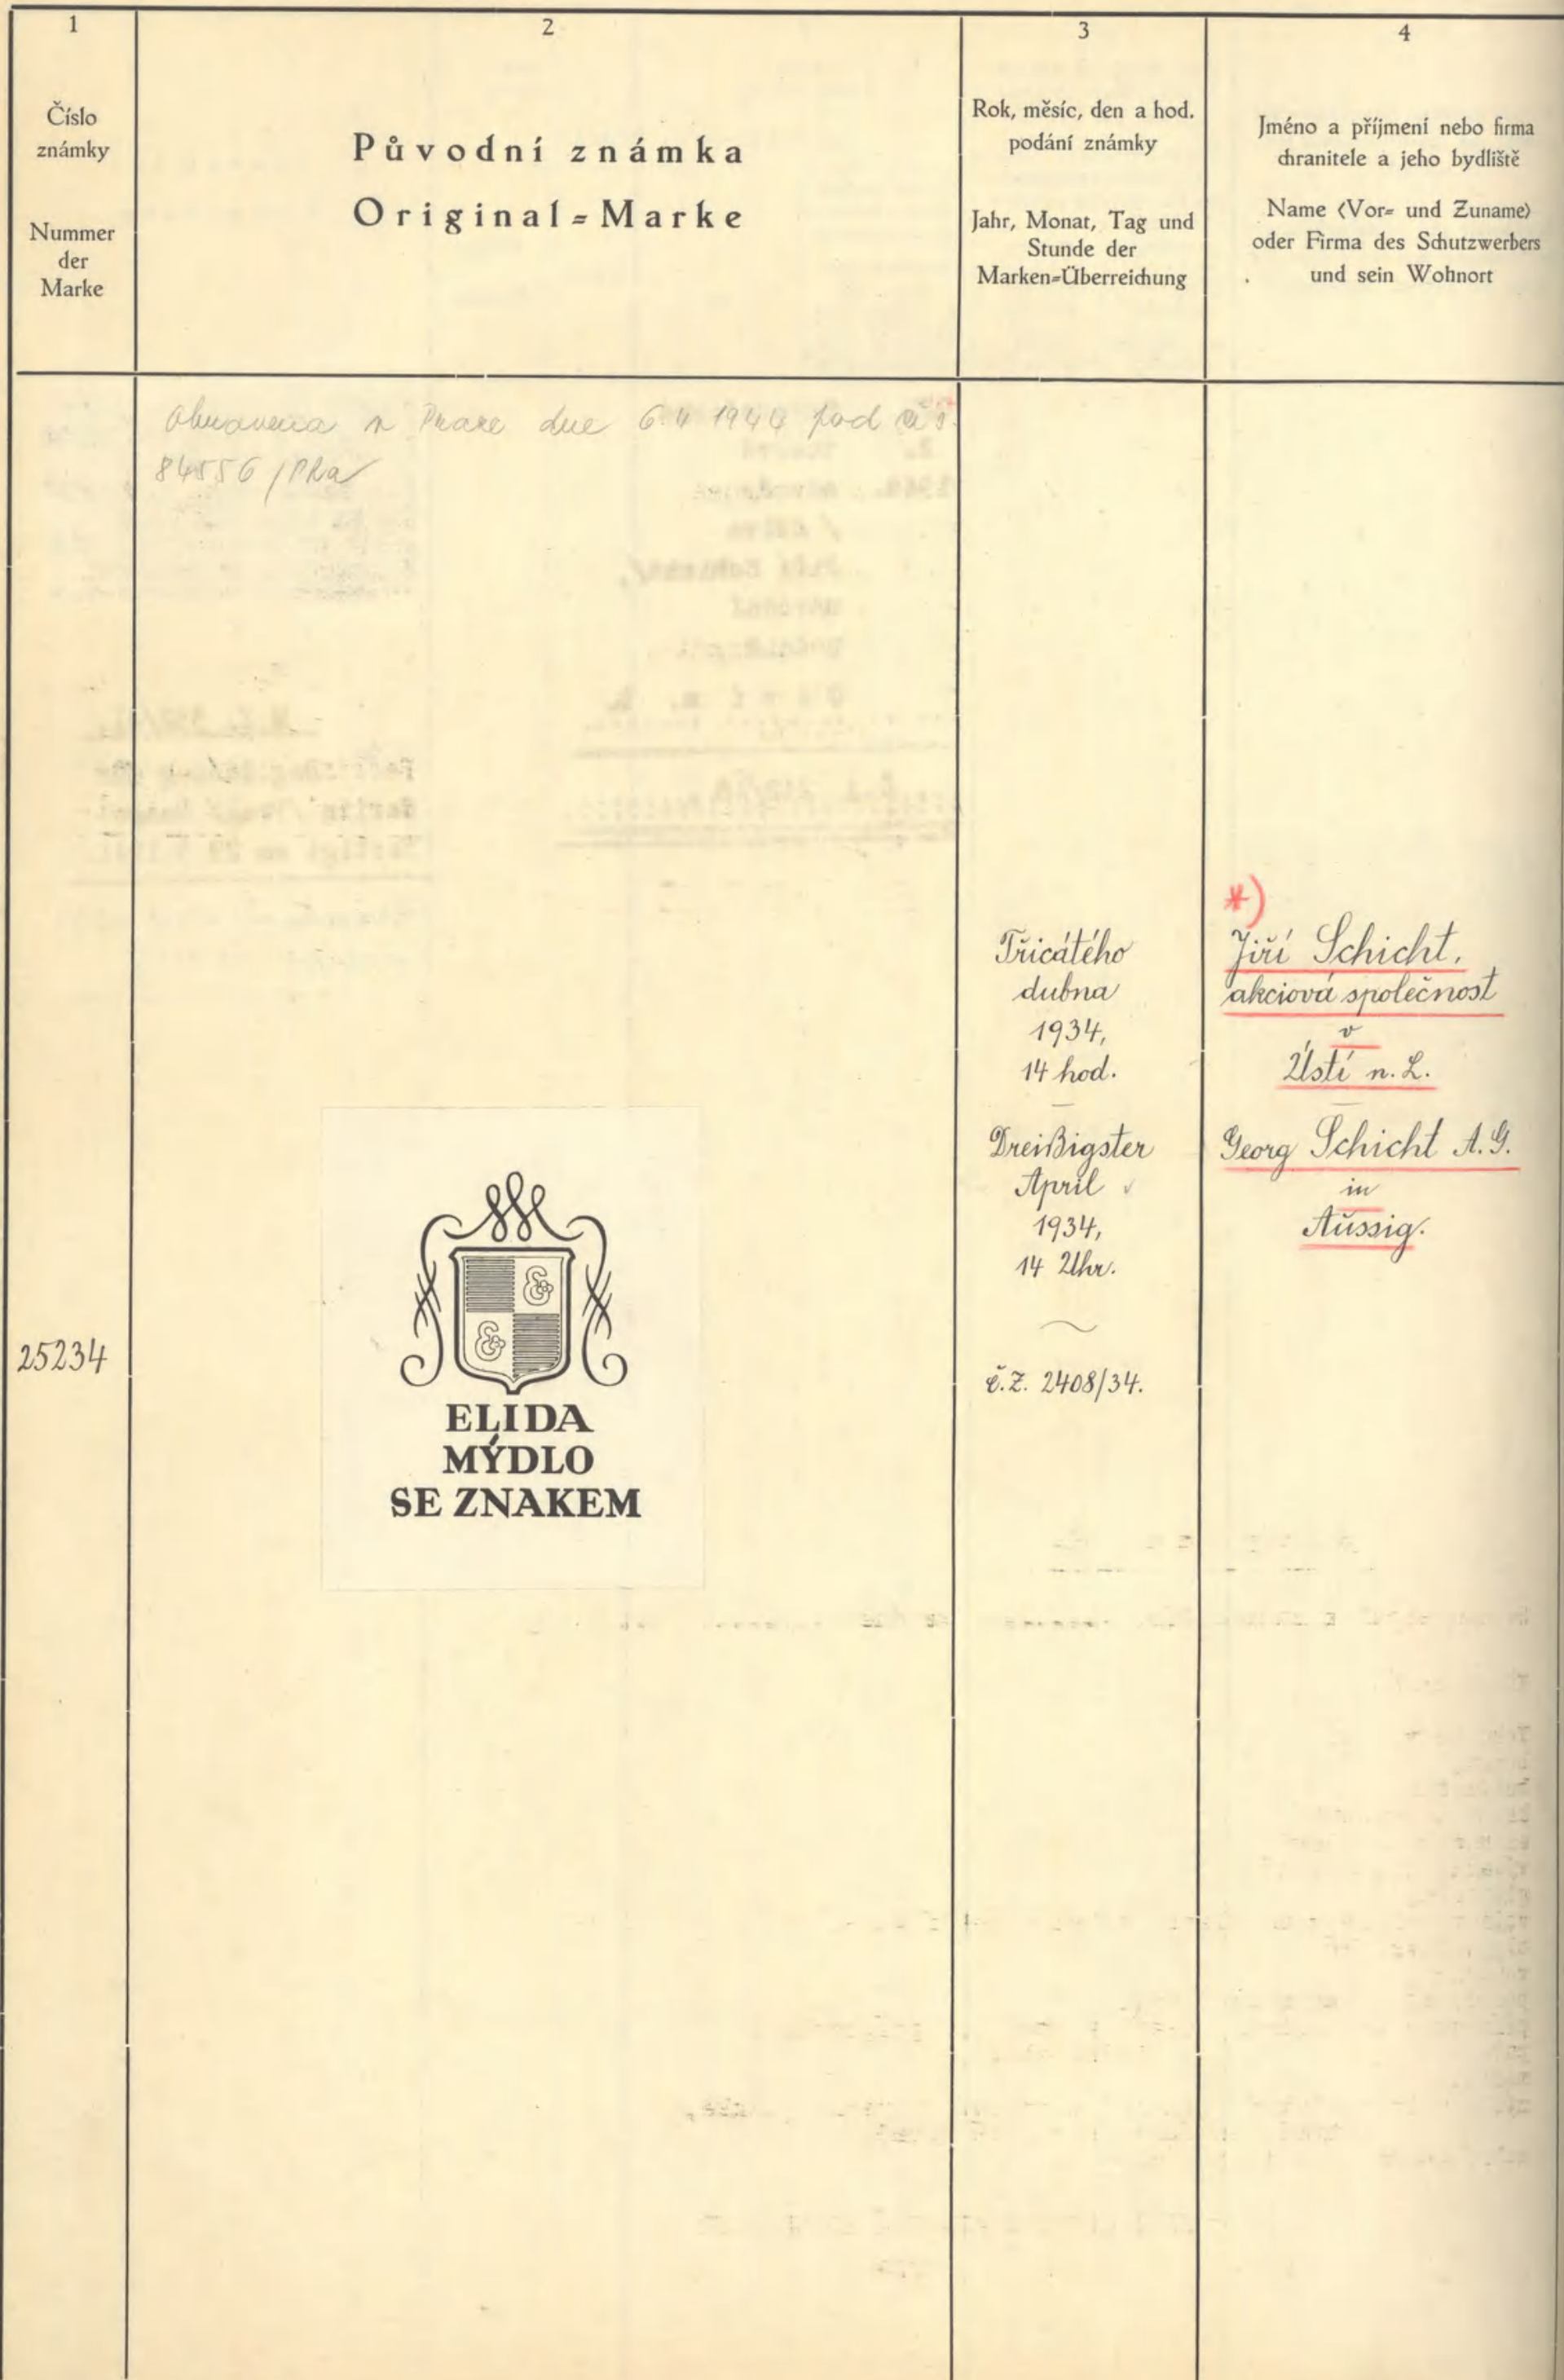 1
Číslo
známky
Nummer
der
Marke
2
Původní známka
Original=Marke
3
Rok, měsíc, den a hod.
podání známky
Jahr, Monat, Tag und
Stunde der
Marken=Überreichung
4
Jméno a příjmení nebo firma
chranitele a jeho bydliště
Name (Vor= und Zuname)
oder Firma des Schutzwerbers
und sein Wohnort
Praze dne 6.4 1944 pod
84556/Pha
25234
ELIDA
MÝDLO
SE ZNAKEM
Třicátého
dubna
1934,
14 hod.
Dreißigster
April
1934,
14 Uhr.
č.z. 2408/34.
*)
Jiří Schicht,
akciová společnost
v
Ústí n. L.
Georg Schicht A.G.
in
Aussig.